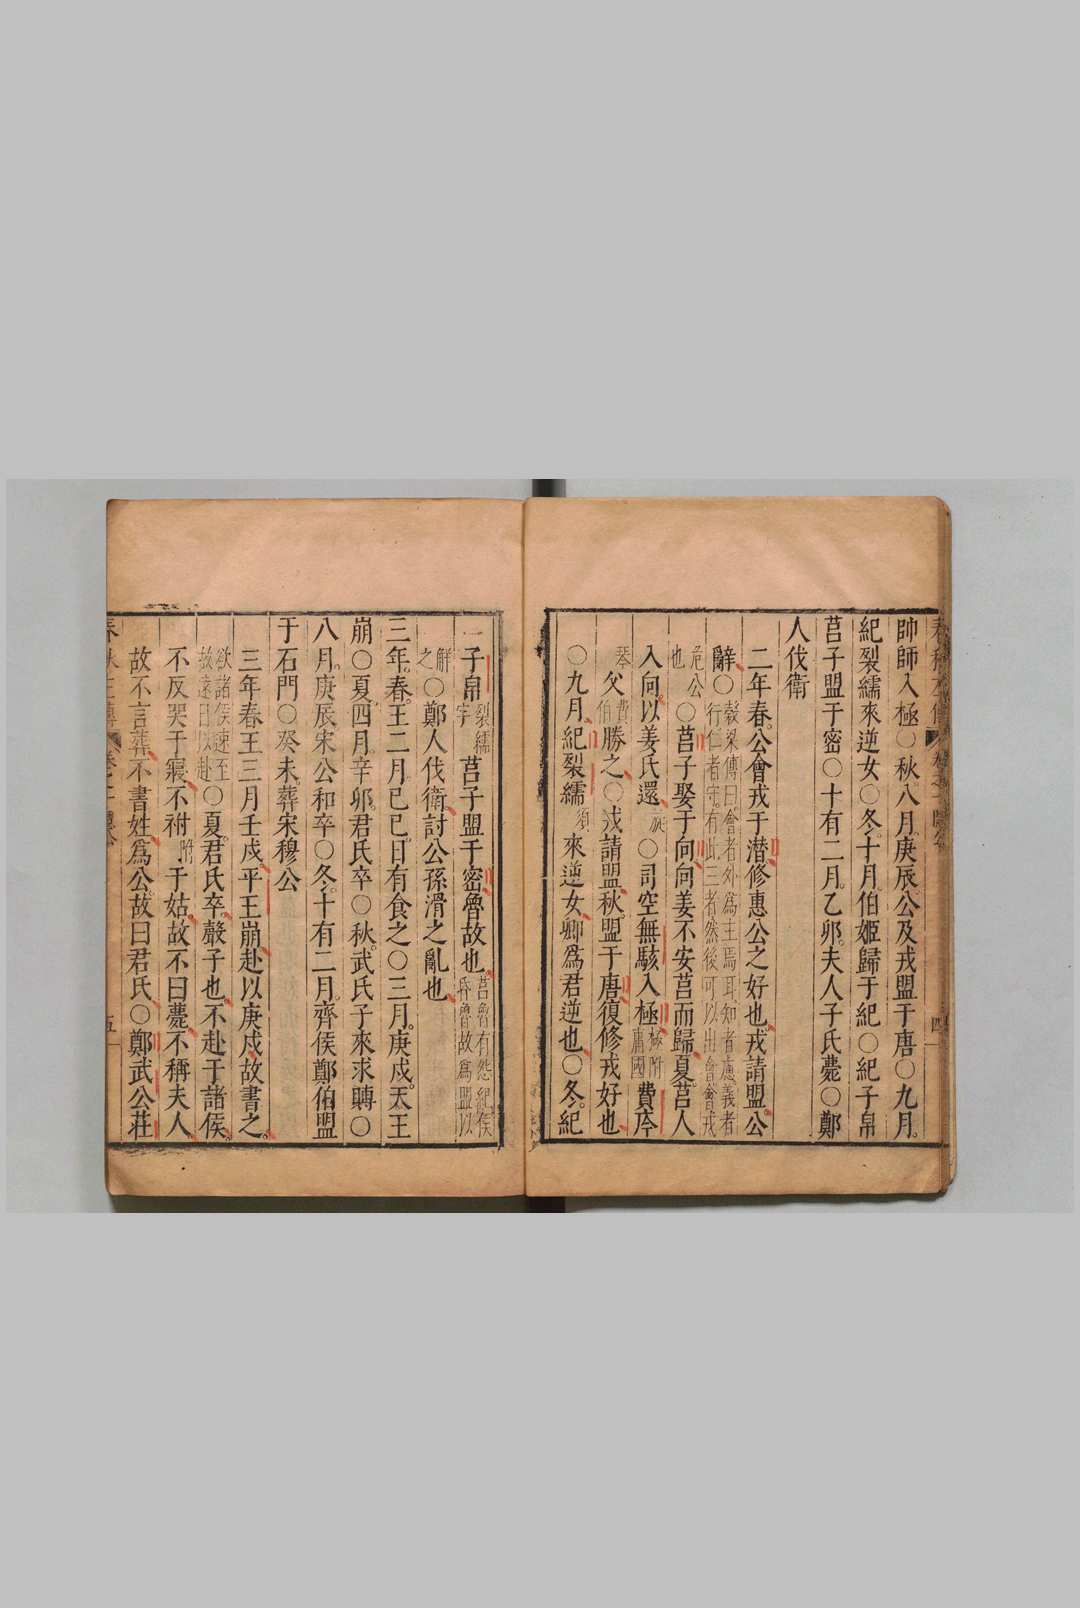 帥師入極○秋八月庚辰公及戎盟于唐○九月
紀裂繻來逆女○冬十月伯姬歸于紀○紀子帛
莒子盟于密○十有二月乙卯夫人子氏薨○鄭
人伐衛
二年春公會戎于潛修惠公之好也戎請盟公
辭○穀梁傳曰會者外爲主焉耳知者慮義者行仁者守有此三者然後可以出會會戎
危公也○莒子娶于向向姜不安莒而歸夏莒人
入向以姜氏還旋○司空無駭入極極附庸國費庈
琴父費伯勝之○戎請盟秋盟于唐復修戎好也
○九月紀裂繻須來逆女卿爲君逆也○冬紀
子帛裂繻字莒子盟于密魯故也莒魯有怨紀侯昏魯故爲盟以
解之○鄭人伐衛討公孫滑之亂也
三年春王二月己巳日有食之○三月庚戌天王
崩○夏四月辛卯君氏卒○秋武氏子來求賻○
八月庚辰宋公和卒○冬十有二月齊侯鄭伯盟
于石門○癸未葬宋穆公
三年春王三月壬戌平王崩赴以庚戌故書之
欲諸侯速至故遠日以赴○夏君氏卒聲子也不赴于諸侯
不反哭于寢不祔附于姑故不曰薨不稱夫人
故不言葬不書姓爲公故曰君氏○鄭武公莊
五